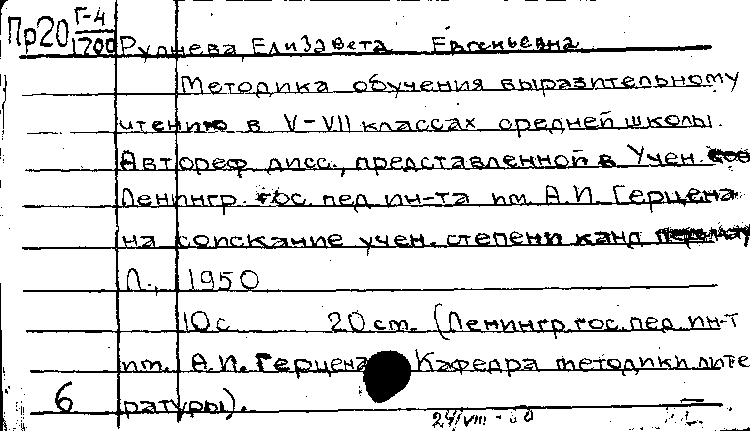 Пр20 Г-4/1700
Елизавета Евгеньевна
Методика обучения выразительному
чтению в V-VII классах средней школы.
Автореф. дисс., представленной в Учен.
Ленингр. гос. пед. ин-та им. А.И. Герцена
на соискание учен. степени канд.
Л., 1950
10 с 20 см. (Ленингр. гос. пед. ин-т
им. А.И. Герцена Кафедра методики лите
6 ратуры).
24/VIII-